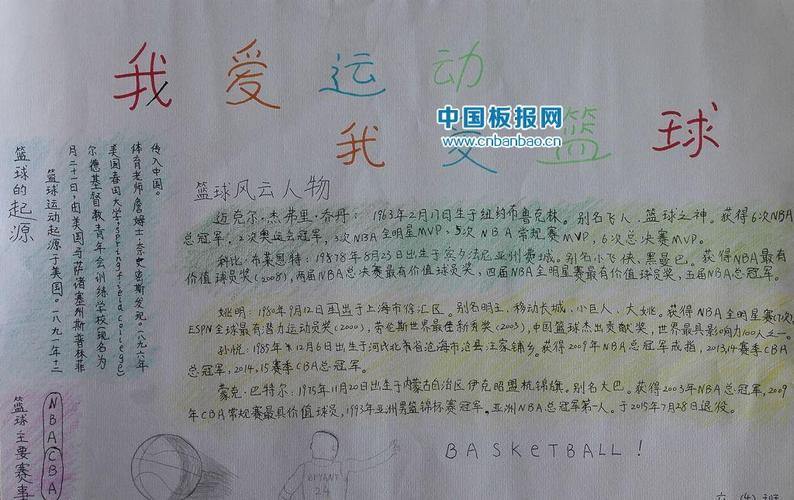 我爱运动
我爱篮球
中国板报网
www.cnbanbao.cn
篮球的起源
篮球运动起源于美国。一八九一年十二
月二十一日,由美国马萨诸塞州斯普林菲
尔德基督教青年会训练学校(现名为
美国春田大学springfieldcollege)
体育老师詹姆士·奈史密斯发现。一八九六年
传入中国。
篮球风云人物
迈克尔·杰弗里·乔丹:1963年2月17日生于纽约布鲁克林。别名飞人、篮球之神。获得6次NBA
总冠军,2次奥运会冠军,3次NBA全明星MVP、5次NBA常规赛MVP,6次总决赛MVP。
科比·布莱恩特:19878年8月23日出生于宾夕法尼亚州费城。别名小飞侠、黑曼巴。获得NBA最有
价值球员奖(2008),两届NBA总决赛最有价值球员奖、四届NBA全明星赛最有价值球员奖,五届NBA总冠军。
姚明:1980年9月12日出生于上海市徐汇区。别名明王、移动长城、小巨人、大姚。获得NBA全明星赛(7次),
ESPN全球最有潜力运动员奖(2000),劳伦斯世界最佳新秀奖(2003),中国篮球杰出贡献奖,世界最具影响力100人之一。
孙悦:1985年12月6日出生于河北省沧海市沧县汪家铺乡。获得2009年NBA总冠军戒指,2013,14赛季CBA
总冠军,2014,15赛季CBA总冠军。
蒙克·巴特尔:1975年11月20日出生于内蒙古自治区伊克昭盟杭锦旗。别名大巴。获得2003年NBA总冠军,2009
年CBA常规赛最具价值球员,1993年亚洲男篮锦标赛冠军。亚洲NBA总冠军第一人。于2015年7月28日退役。
篮球主要赛事
NBA
CBA
BRYANT
24
BASKETBALL!
六(4)班